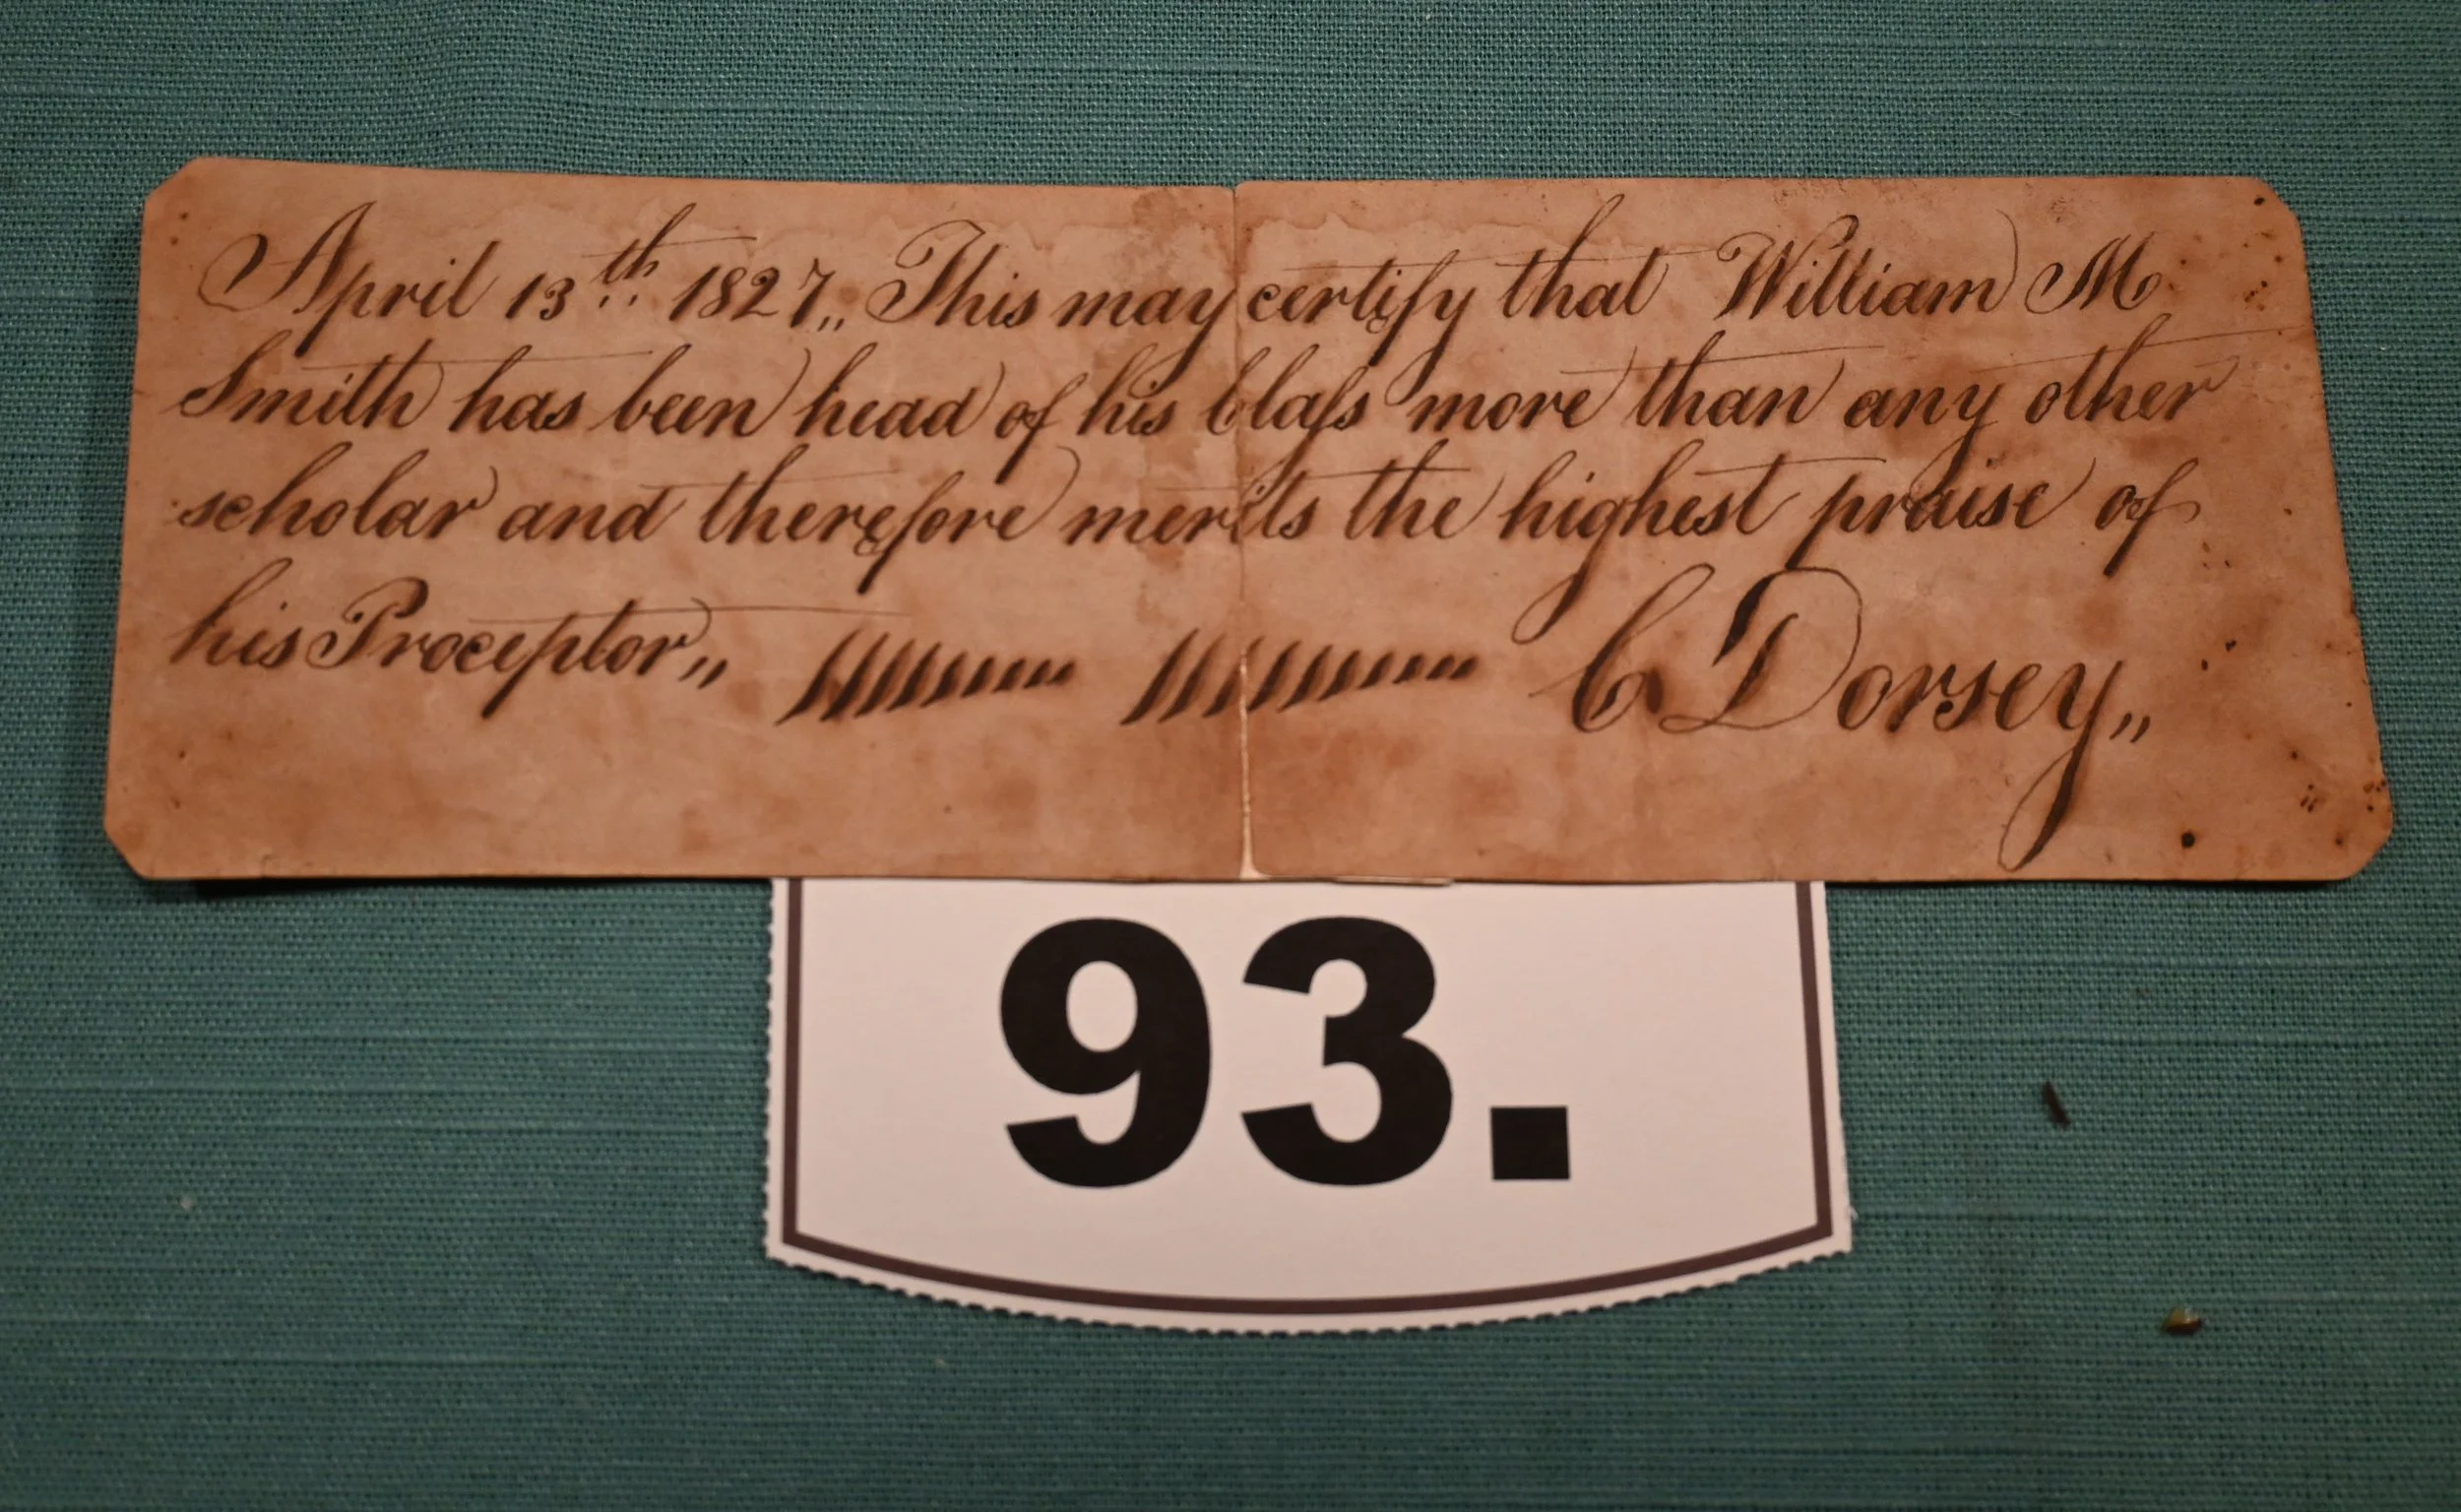 April 13th 1827,, This may certify that William M
Smith has been head of his Claſs more than any other
scholar and therefore merits the highest praise of
his Proceptor,, C Dorsey,,
93.